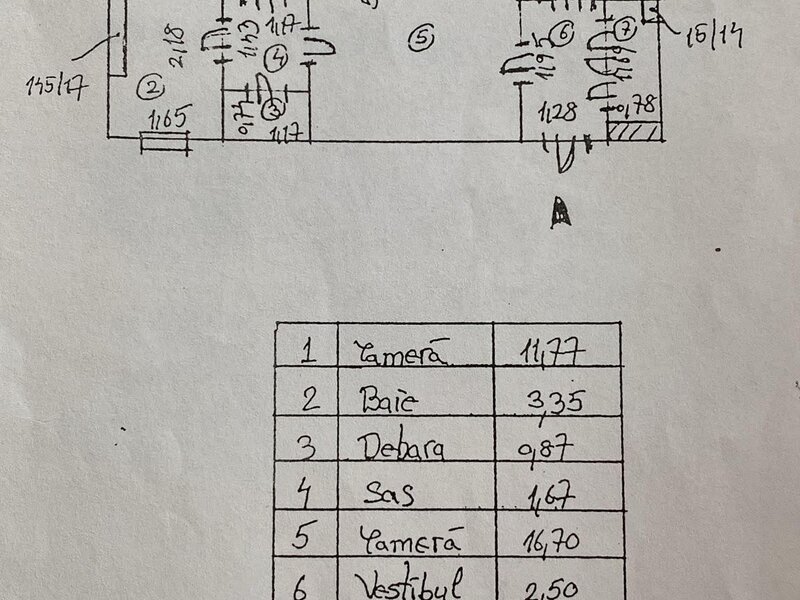 2,18
1,43
1,17
4
5
6
7
1,95
1,69
15/14
145/17
2
1,65
0,74
3
1,17
1,28
0,78
1 Cameră 11,77
2 Baie 3,35
3 Debara 0,87
4 Sas 1,67
5 Cameră 16,70
6 Vestibul 2,50